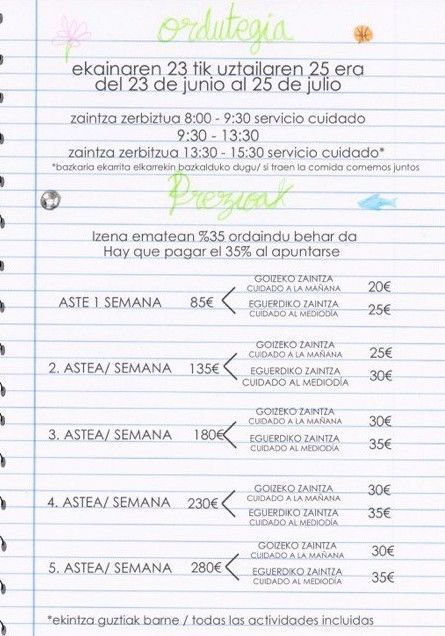 ordutegia
ekainaren 23 tik uztailaren 25 era
del 23 de junio al 25 de julio
zaintza zerbiztua 8:00 - 9:30 servicio cuidado
9:30 - 13:30
zaintza zerbitzua 13:30 - 15:30 servicio cuidado*
*bazkaria ekarrita elkarrekin bazkalduko dugu/ si traen la comida comemos juntos
Prezioak
Izena ematean %35 ordaindu behar da
Hay que pagar el 35% al apuntarse
GOIZEKO ZAINTZA
CUIDADO A LA MAÑANA 20€
ASTE 1 SEMANA 85€
EGUERDIKO ZAINTZA
CUIDADO AL MEDIODÍA 25€
GOIZEKO ZAINTZA
CUIDADO A LA MAÑANA 25€
2. ASTEA/ SEMANA 135€
EGUERDIKO ZAINTZA
CUIDADO AL MEDIODÍA 30€
GOIZEKO ZAINTZA
CUIDADO A LA MAÑANA 30€
3. ASTEA/ SEMANA 180€
EGUERDIKO ZAINTZA
CUIDADO AL MEDIODÍA 35€
GOIZEKO ZAINTZA
CUIDADO A LA MAÑANA 30€
4. ASTEA/ SEMANA 230€
EGUERDIKO ZAINTZA
CUIDADO AL MEDIODÍA 35€
GOIZEKO ZAINTZA
CUIDADO A LA MAÑANA 30€
5. ASTEA/ SEMANA 280€
EGUERDIKO ZAINTZA
CUIDADO AL MEDIODÍA 35€
*ekintza guztiak barne / todas las actividades incluidas